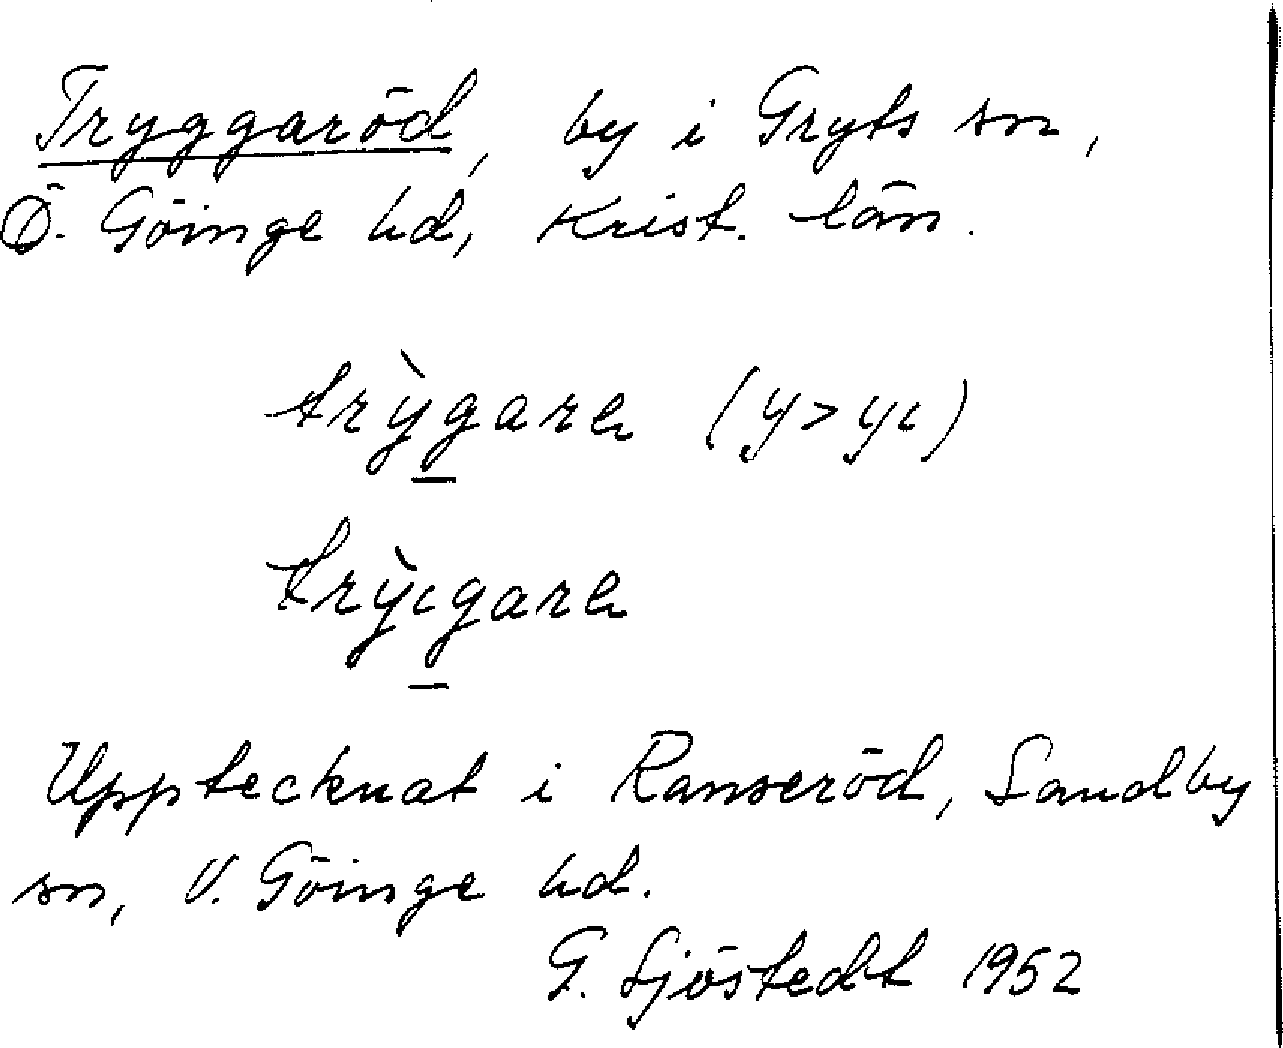 Tryggaröd, by i Gryts sn,
Ö. Göinge hd, Krist. län.
trỳgare (y>yɩ)
trỳɩgare
Upptecknat i Ranseröd, Sandby
sn, V. Göinge hd.
G. Sjöstedt 1952